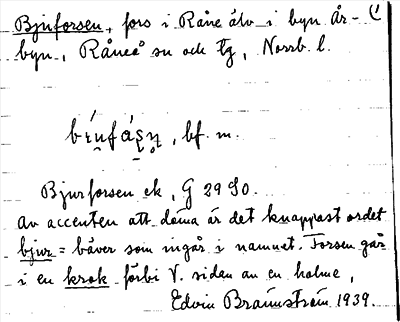 Bjurforsen, fors i Råne älv i byn År-
byn, Råneå sn och tg, Norrb. l.
bf. m.
Bjurforsen ek, G 29 SO.
Av accenten att döma är det knappast ordet
bjur = bäver som ingår i namnet. Forsen går
i en krok förbi V. sidan av en holme,
Edvin Brännström 1939.